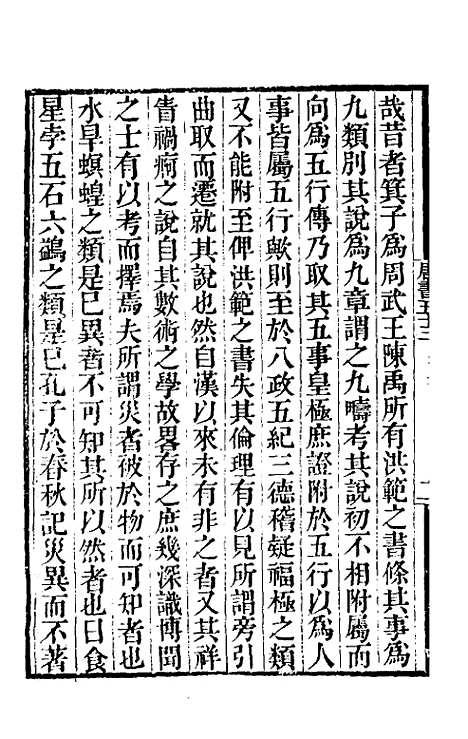 哉昔者箕子爲周武王陳禹所有洪範之書條其事爲
九類別其說爲九章謂之九疇考其說初不相附屬而
向爲五行傳乃取其五事皇極庶證附於五行以爲人
事皆屬五行歟則至於八政五紀三德稽疑福極之類
又不能附至俾洪範之書失其倫理有以見所謂旁引
曲取而遷就其說也然自漢以來未有非之者又其祥
眚禍痾之說自其數術之學故畧存之庶幾深識博聞
之士有以考而擇焉夫所謂災者被於物而可知者也
水旱螟蝗之類是已異者不可知其所以然者也日食
星孛五石六鷁之類是已孔子於春秋記災異而不著